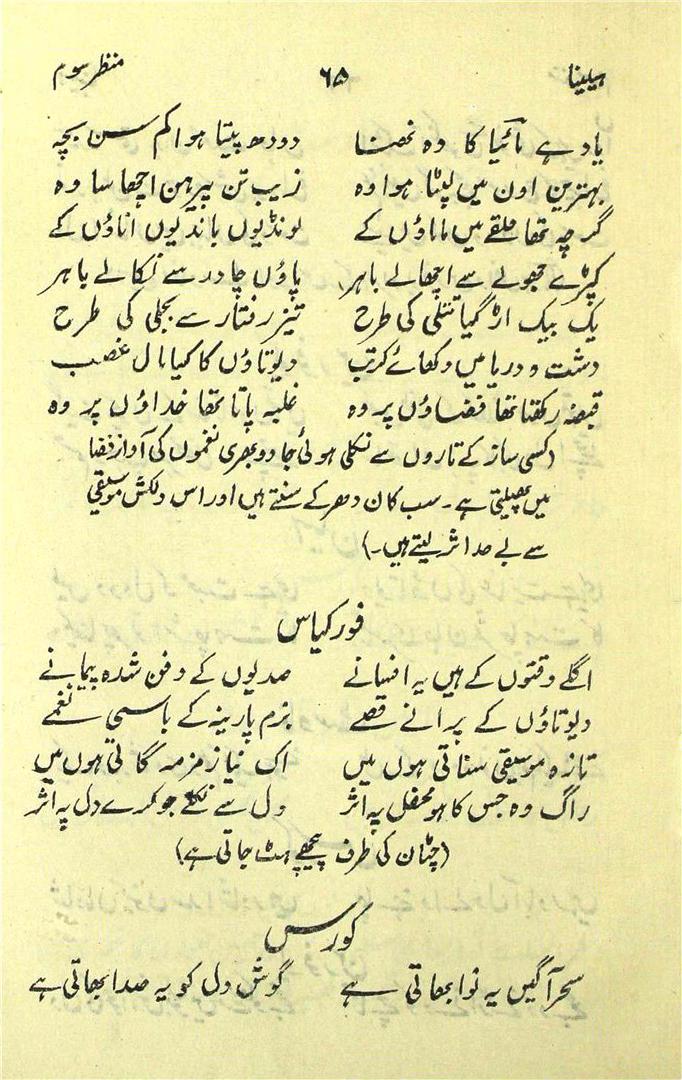 ہیلینا ۶۵ منظر سوم
یاد ہے مائیا کا وہ ننھا سا دودھ پیتا ہوا کم سن بچہ
بہترین اون میں لپٹا ہوا وہ زیب تن پیرہن اچھا سا وہ
گرچہ تھا حلقے میں ماماؤں کے لونڈیوں باندیوں اناؤں کے
کپڑے جھولے سے اچھالے باہر پاؤں چادر سے نکالے باہر
یک بیک اڑ گیا تتلی کی طرح تیز رفتار سے بجلی کی طرح
دشت و دریا میں دکھائے کرتب دیوتاؤں کا کیا مال غصب
قبضہ رکھتا تھا فضاؤں پر وہ غلبہ پاتا تھا خداؤں پر وہ
(کسی ساز کے تاروں سے نکلی ہوئی جادو بھری نغموں کی آواز فضا
میں پھیلتی ہے۔ سب کان دھر کے سنتے ہیں اور اس دلکش موسیقی
سے بے حد اثر لیتے ہیں۔)
فورکیاس
اگلے وقتوں کے ہیں یہ افسانے صدیوں کے دفن شدہ پیمانے
دیوتاؤں کے پرانے قصے بزم پارینہ کے باسی نغمے
تازہ موسیقی سناتی ہوں میں اک نیا زمزمہ گاتی ہوں میں
راگ وہ جس کا ہو محفل پہ اثر دل سے نکلے جو کرے دل پہ اثر
(چٹان کی طرف پیچھے ہٹ جاتی ہے)
کورس
سحر آگیں یہ نوا بھاتی ہے گوش دل کو یہ صدا بھاتی ہے